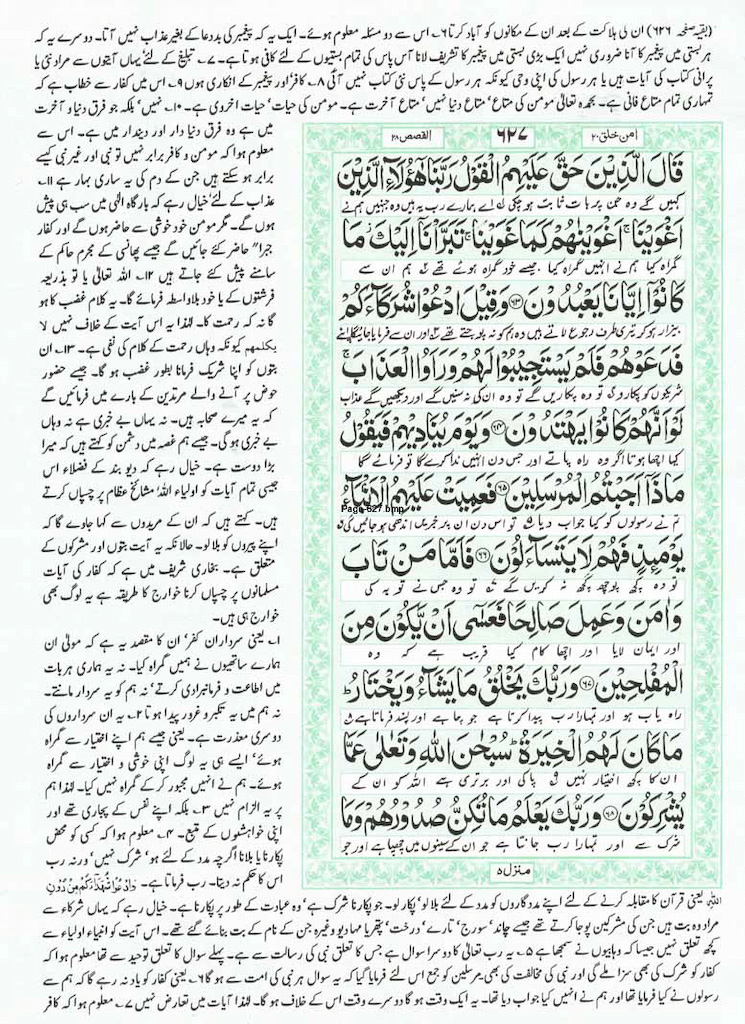 (بقیہ صفحہ ۶۲۶) ان کی ہلاکت کے بعد ان کے مکانوں کو آباد کرتا ۶؎ اس سے دو مسئلہ معلوم ہوئے۔ ایک یہ کہ پیغمبر کی بددعا کے بغیر عذاب نہیں آتا۔ دوسرے یہ کہ
ہر بستی میں پیغمبر کا آنا ضروری نہیں ایک بڑی بستی میں پیغمبر کا تشریف لانا آس پاس کی تمام بستیوں کے لئے کافی ہوتا ہے۔ ۷؎ تبلیغ کے لئے یہاں آیتوں سے مراد نئی یا
پرانی کتاب کی آیات ہیں یا ہر رسول کی اپنی وحی کیونکہ ہر رسول کے پاس نئی کتاب نہیں آئی ۸؎ کافر اور پیغمبر کے انکاری ہوں ۹؎ اس میں کفار سے خطاب ہے کہ
تمہاری تمام متاع فانی ہے۔ بحمدہ تعالیٰ مومن کی متاع' متاع دنیا نہیں' متاع آخرت ہے۔ مومن کی حیات' حیات اخروی ہے۔ ۱۰؎ نہیں' بلکہ جو فرق دنیا و آخرت
میں ہے وہ فرق دنیا دار اور دیندار میں ہے۔ اس سے
معلوم ہوا کہ مومن و کافر برابر نہیں تو نبی اور غیر نبی کیسے
برابر ہو سکتے ہیں جن کے دم کی یہ ساری بہار ہے ۱۱؎
عذاب کے لئے' خیال رہے کہ بارگاہ الٰہی میں سب ہی پیش
ہوں گے۔ مگر مومن خود خوشی سے حاضر ہوں گے اور کفار
جبرا" حاضر کئے جائیں گے جیسے پھانسی کے مجرم حاکم کے
سامنے پیش کئے جاتے ہیں ۱۲؎ اللہ تعالیٰ یا تو بذریعہ
فرشتوں کے یا خود بلاواسطہ فرمائے گا۔ یہ کلام غضب کا ہو
گا نہ کہ رحمت کا۔ لہٰذا یہ اس آیت کے خلاف نہیں لا
یکلمهم کیونکہ وہاں رحمت کے کلام کی نفی ہے۔ ۱۳؎ ان
بتوں کو اپنا شریک فرمانا بطور غضب ہو گا۔ جیسے حضور
حوض پر آنے والے مرتدین کے بارے میں فرمائیں گے
کہ یہ میرے صحابہ ہیں۔ نہ یہاں بے خبری ہے نہ وہاں
بے خبری ہو گی۔ جیسے ہم غصہ میں دشمن کو کہتے ہیں کہ میرا
بڑا دوست ہے۔ خیال رہے کہ دیو بند کے فضلاء اس
جیسی تمام آیات کو اولیاء اللہ' مشائخ عظام پر چسپاں کرتے
ہیں۔ کہتے ہیں کہ ان کے مریدوں سے کہا جاوے گا کہ
اپنے پیروں کو بلا لو۔ حالانکہ یہ آیت بتوں اور مشرکوں کے
متعلق ہے۔ بخاری شریف میں ہے کہ کفار کی آیات
مسلمانوں پر چسپاں کرنا خوارج کا طریقہ ہے یہ لوگ بھی
خوارج ہی ہیں۔
۱؎ یعنی سرداران کفر' ان کا مقصد یہ ہے کہ مولیٰ ان
ہمارے ساتھیوں نے ہمیں گمراہ کیا۔ نہ یہ ہماری ہر بات
میں اطاعت و فرمانبرداری کرتے' نہ ہم کو یہ سردار مانتے۔
نہ ہم میں یہ تکبر و غرور پیدا ہوتا ۲؎ یہ ان سرداروں کی
دوسری معذرت ہے۔ یعنی جیسے ہم اپنے اختیار سے گمراہ
ہوئے' ایسے ہی یہ لوگ اپنی خوشی و اختیار سے گمراہ
ہوئے۔ ہم نے انہیں مجبور کر کے گمراہ نہیں کیا۔ لہٰذا ہم
پر یہ الزام نہیں ۳؎ بلکہ اپنے نفس کے پجاری تھے اور
اپنی خواہشوں کے متبع۔ ۴؎ معلوم ہوا کہ کسی کو محض
پکارنا یا بلانا اگرچہ مدد کے لئے ہو' شرک نہیں' ورنہ رب
اس کا حکم نہ دیتا۔ رب فرماتا ہے۔ وَادْعُوْا شُهَدَآءَكُمْ مِّنْ دُوْنِ
امن خلق ۲۰
۶۲۷
القصص ۲۸
قَالَ الَّذِيْنَ حَقَّ عَلَيْهِمُ الْقَوْلُ رَبَّنَا هٰٓؤُلَآءِ الَّذِيْنَ
کہیں گے وہ جن پر بات ثابت ہو چکی اے ہمارے رب یہ ہیں وہ جنہیں ہم نے
اَغْوَيْنَا ۚ اَغْوَيْنٰهُمْ كَمَا غَوَيْنَا ۚ تَبَرَّاْنَآ اِلَيْكَ ؗ مَا
گمراہ کیا ہم نے انہیں گمراہ کیا جیسے خود گمراہ ہوئے تھے ہم ان سے
كَانُوْٓا اِيَّانَا يَعْبُدُوْنَ ﴿۶۳﴾ وَقِيْلَ ادْعُوْا شُرَكَآءَكُمْ
بیزار ہو کر تیری طرف رجوع لاتے ہیں وہ ہم کو نہ پوجتے تھے اور ان سے فرمایا جائیگا اپنے
فَدَعَوْهُمْ فَلَمْ يَسْتَجِيْبُوْا لَهُمْ وَرَاَوُا الْعَذَابَ ۚ
شریکوں کو پکارو تو وہ پکاریں گے تو وہ ان کی نہ سنیں گے اور دیکھیں گے عذاب
لَوْ اَنَّهُمْ كَانُوْا يَهْتَدُوْنَ ﴿۶۴﴾ وَيَوْمَ يُنَادِيْهِمْ فَيَقُوْلُ
کیا اچھا ہوتا اگر وہ راہ پاتے اور جس دن انہیں ندا کرے گا تو فرمائے گا
مَاذَآ اَجَبْتُمُ الْمُرْسَلِيْنَ ﴿۶۵﴾ فَعَمِيَتْ عَلَيْهِمُ الْاَنْۢبَآءُ
Page-627.bmp
تم نے رسولوں کو کیا جواب دیا تو اس دن ان پر خبریں اندھی ہو جائیں گی
يَوْمَئِذٍ فَهُمْ لَا يَتَسَآءَلُوْنَ ﴿۶۶﴾ فَاَمَّا مَنْ تَابَ
تو وہ کچھ پوچھ گچھ نہ کریں گے تو وہ جس نے توبہ کی
وَاٰمَنَ وَعَمِلَ صَالِحًا فَعَسٰٓى اَنْ يَّكُوْنَ مِنَ
اور ایمان لایا اور اچھا کام کیا قریب ہے کہ وہ
الْمُفْلِحِيْنَ ﴿۶۷﴾ وَرَبُّكَ يَخْلُقُ مَا يَشَآءُ وَيَخْتَارُ ؕ
راہ یاب ہو اور تمہارا رب پیدا کرتا ہے جو چاہے اور پسند فرماتا ہے
مَا كَانَ لَهُمُ الْخِيَرَةُ ؕ سُبْحٰنَ اللّٰهِ وَتَعٰلٰى عَمَّا
ان کا کچھ اختیار نہیں پاکی اور برتری ہے اللہ کو ان کے
يُشْرِكُوْنَ ﴿۶۸﴾ وَرَبُّكَ يَعْلَمُ مَا تُكِنُّ صُدُوْرُهُمْ وَمَا
شرک سے اور تمہارا رب جانتا ہے جو ان کے سینوں میں چھپا ہے اور جو
منزل ۵
اللہِ یعنی قرآن کا مقابلہ کرنے کے لئے اپنے مددگاروں کو مدد کے لئے بلا لو' پکار لو۔ جو پکارنا شرک ہے' وہ عبادت کے طور پر پکارنا ہے۔ خیال رہے کہ یہاں شرکاء سے
مراد وہ بت ہیں جن کی مشرکین پوجا کرتے تھے جیسے چاند' سورج' تارے' درخت' پتھر یا مہادیو وغیرہ جن کے نام کے بت بنائے گئے تھے۔ اس آیت کو انبیاء اولیاء سے
کچھ تعلق نہیں جیسا کہ وہابیوں نے سمجھا ہے ۵؎ یہ رب تعالیٰ کا دوسرا سوال ہے جس کا تعلق نبی کی رسالت سے ہے۔ پہلے سوال کا تعلق توحید سے تھا معلوم ہوا کہ
کفار کو شرک کی بھی سزا ملے گی اور نبی کی مخالفت کی بھی مرسلین کو جمع اس لئے فرمایا گیا کہ یہ سوال ہر نبی کی امت سے ہو گا ۶؎ یعنی کفار کو یاد نہ رہے گا کہ ہم سے
رسولوں نے کیا فرمایا تھا اور ہم نے انہیں کیا جواب دیا تھا۔ یہ ایک وقت ہو گا دوسرے وقت اس کے خلاف ہو گا۔ لہٰذا آیات میں تعارض نہیں ۷؎ معلوم ہوا کہ کافر